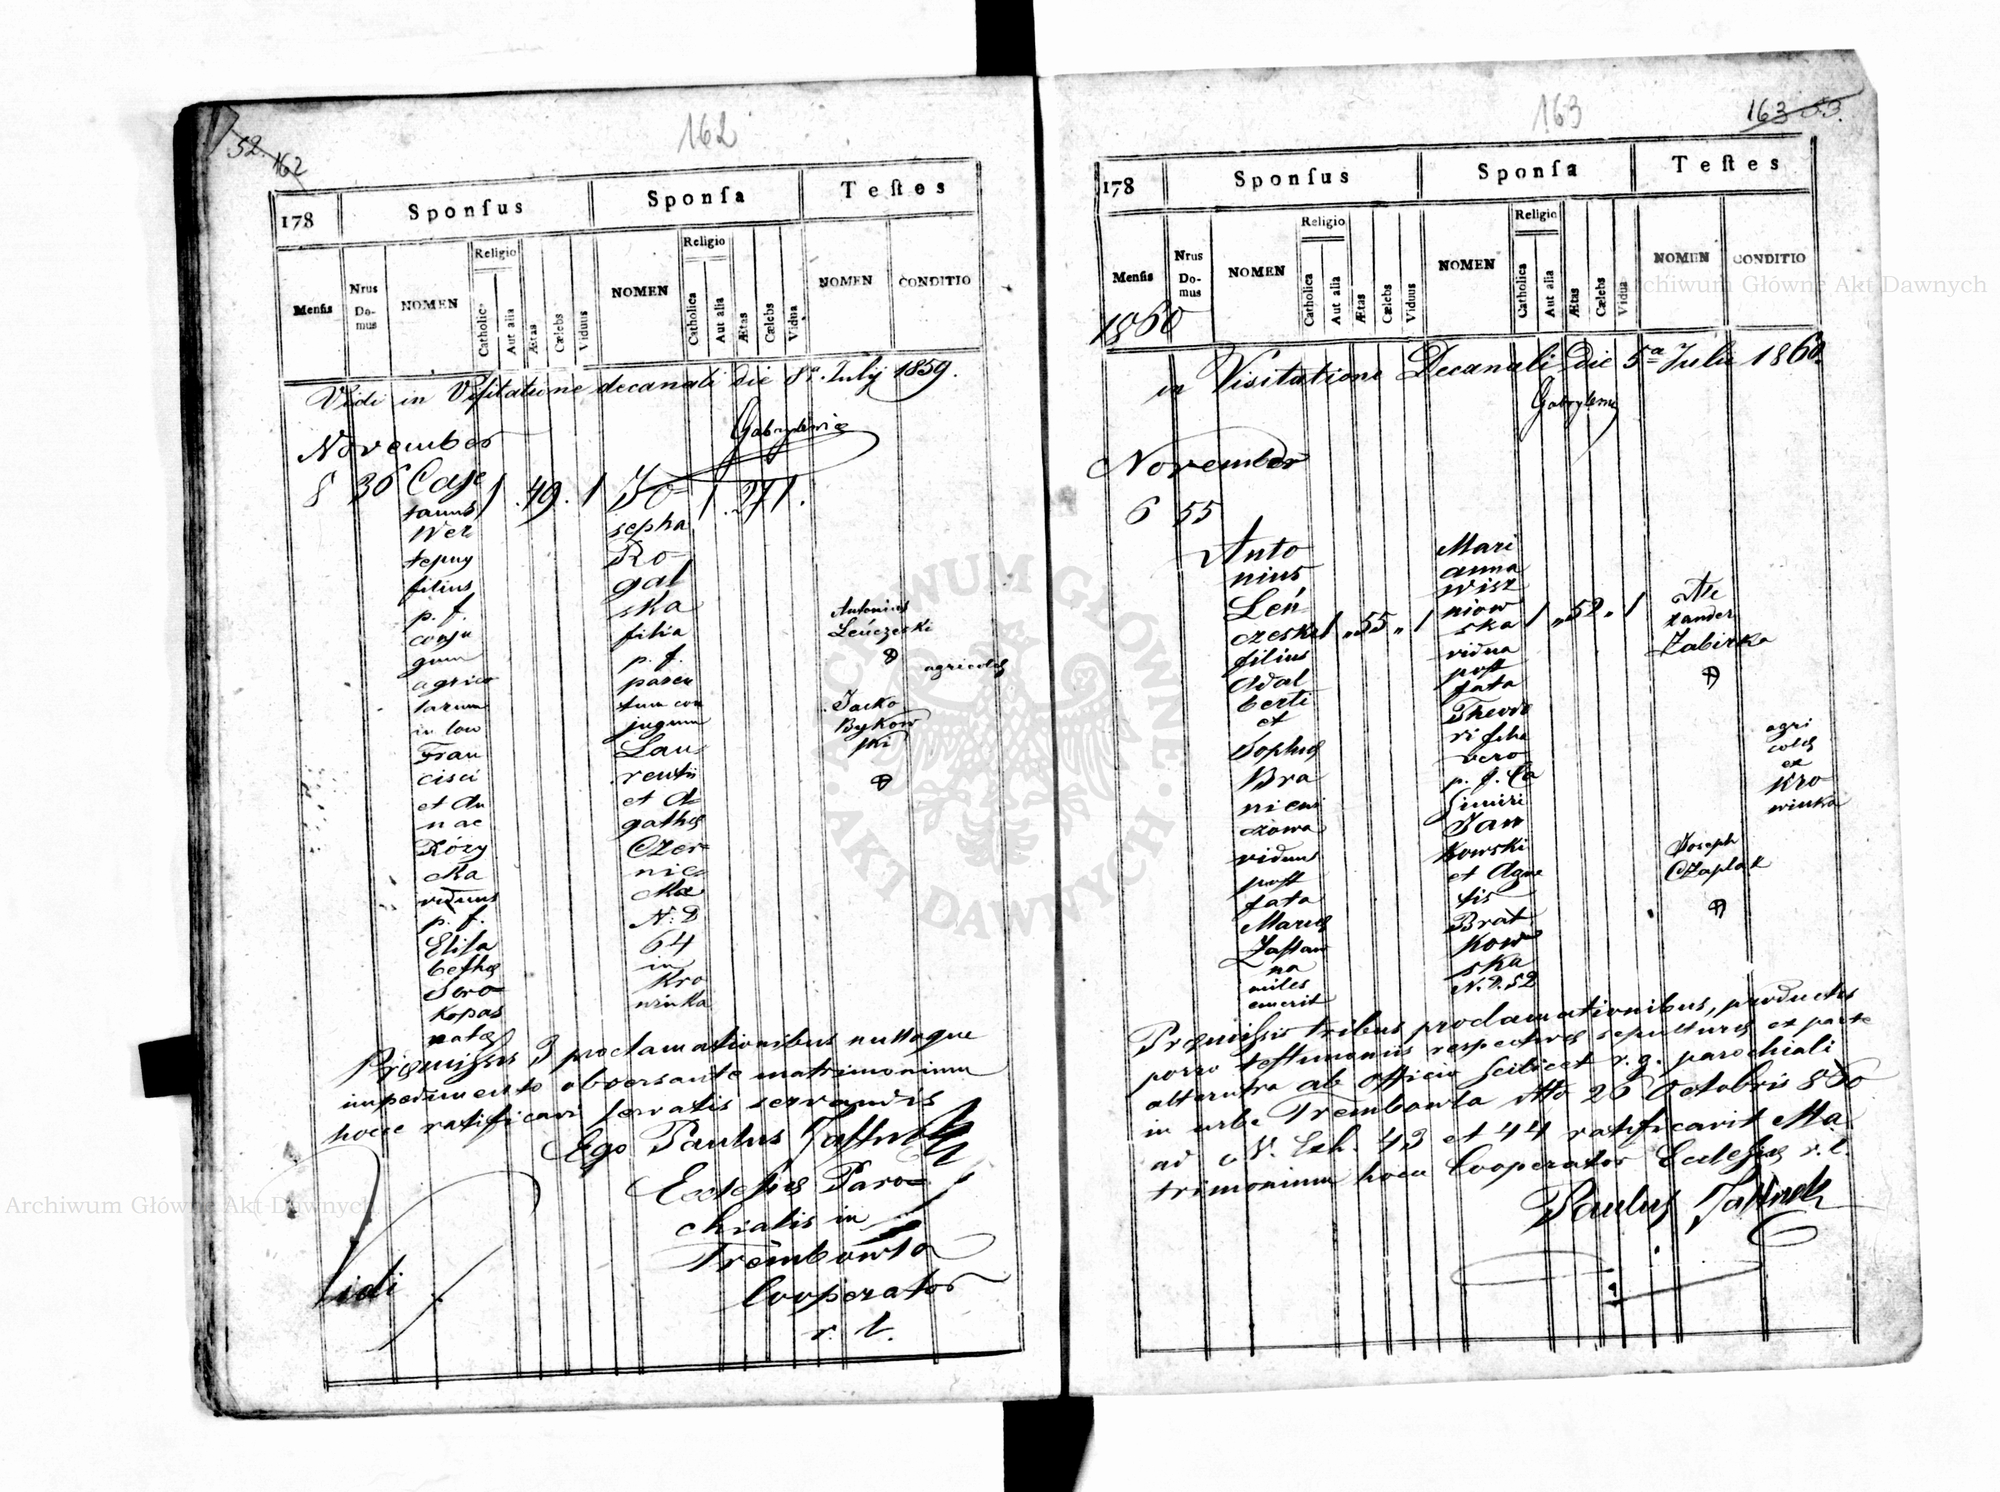 52. 162
162
178
Sponſus
Sponſa
Teſtes
Menſis
Nrus Domus
NOMEN
Religio
Catholica
Aut alia
Ætas
Cælebs
Viduus
NOMEN
Religio
Catholica
Aut alia
Ætas
Cælebs
Vidua
NOMEN
CONDITIO
Vidi in Visitatione decanali die 8a July 1859.
Gabrylewicz
November
8 36
Caje
tanus
Wer
tepny
filius
p. f.
conju
gum
agrico
larum
in loco
Fran
cisci
et An
nae
Róży
cka
viduus
p. f.
Elisa
bethæ
Sero
kopas
natæ
1 . 49 . 1
Jo
sepha
Ro-
gal
ska
filia
p. f.
paren
tum con
jugum
Lau
rentii
et A-
gathæ
Czer-
nic-
cka
N. D
64
in
Kro
winka
1 . 27 1.
Antonius
Leńczeski
agricolæ
Jacko
Bykow
ski
Præmissis 3 proclamationibus nulloque
impedimento obversante matrimonium
hocce ratificavi servatis servandis
Ego Paulus
Ecclesiæ Paro-
chialis in
Trembowla
Cooperator
r. l.
Vidi
163
163 53.
178
Sponſus
Sponſa
Teſtes
Menſis
Nrus Domus
NOMEN
Religio
Catholica
Aut alia
Ætas
Cælebs
Viduus
NOMEN
Religio
Catholica
Aut alia
Ætas
Cælebs
Vidua
NOMEN
CONDITIO
1860
in Visitatione Decanali die 5a Julii 1860
Gabrylewicz
November
6 55
Anto
nius
Leń
czeski
filius
Adal
berti
et
Sophiæ
Bra
nicw
czowa
viduus
post
fata
Mariæ
Zastaw
na
miles
emerit
1 „55„ 1
Mari
anna
Wisz
niow
ska
vidua
post
fata
Theodo
ri filia
vero
p. f. Ca
simiri
Jan
kowski
et Agne
tis
Brat
kow
ska
N. D. 52
1 „52„ 1
Ale
xander
Zabirka
agri
colæ
ex
Kro
winka
Joseph
Czaplak
Præmissis tribus proclamationibus, productis
porro testimoniis respectivæ sepulturæ ex parte
alterutra ab officio scilicet r. g. parochiali
in urbe Trembowla dtto 26 Octobris 860
ad N. Exh. 43 et 44 ratificavit Ma
trimonium hocce Cooperator Ecclesiæ r. l.
Paulus
Archiwum Główne Akt Dawnych
Archiwum Główne Akt Dawnych
ARCHIWUM GŁÓWNE · AKT DAWNYCH ·